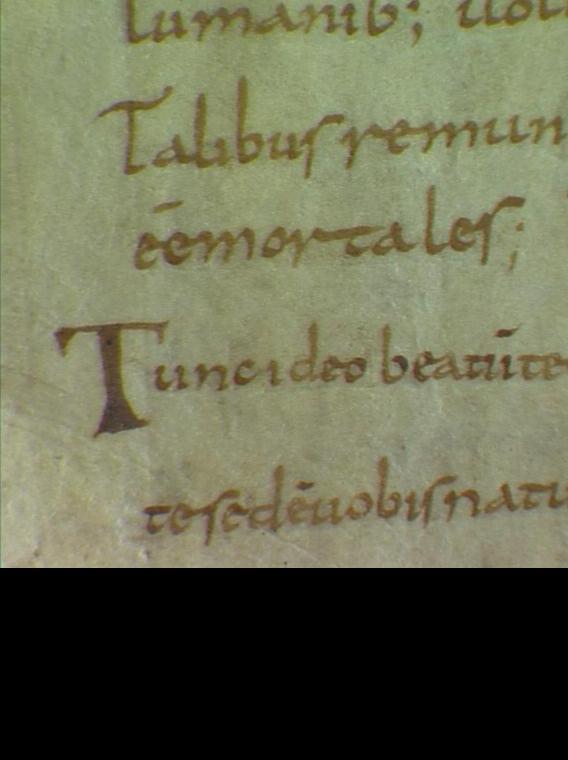 lumanib;
Talibus remun
ēemortales;
Tunc ideo beatū te
te sed ēuobis natu